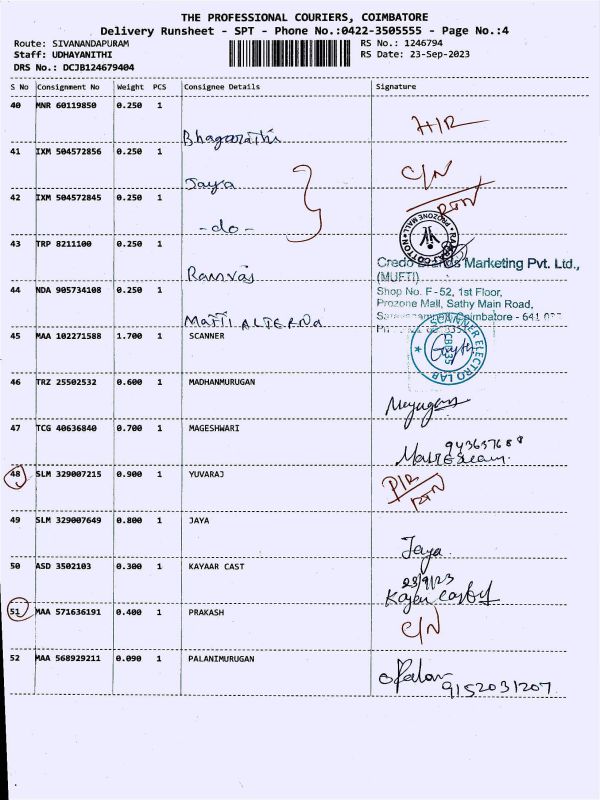 THE PROFESSIONAL COURIERS, COIMBATORE
Delivery Runsheet - SPT - Phone No.:0422-3505555 - Page No.:4
Route: SIVANANDAPURAM RS No.: 1246794
Staff: UDHAYANITHI RS Date: 23-Sep-2023
DRS No.: DCJB124679404
S No Consignment No Weight PCS Consignee Details Signature
40 MNR 60119850 0.250 1
Bhagarathi
41 IXM 504572856 0.250 1 C/N
Jaya
42 IXM 504572845 0.250 1 RTN
-do-
PROZONE MALL
43 TRP 8211100 0.250 1
Ramvas
Credo Brands Marketing Pvt. Ltd.,
(MUFTI)
44 NDA 905734108 0.250 1 Shop No. F-52, 1st Floor,
Prozone Mall, Sathy Main Road,
Coimbatore - 641
45 MAA 102271588 1.700 1 SCANNER
SCANNER ELECTRO LAB
46 TRZ 25502532 0.600 1 MADHANMURUGAN
47 TCG 40636840 0.700 1 MAGESHWARI
48 SLM 329007215 0.900 1 YUVARAJ
RTN
49 SLM 329007649 0.800 1 JAYA
Jaya
50 ASD 3502103 0.300 1 KAYAAR CAST
23/9/23
51 MAA 571636191 0.400 1 PRAKASH
C/N
52 MAA 568929211 0.090 1 PALANIMURUGAN
9152031207